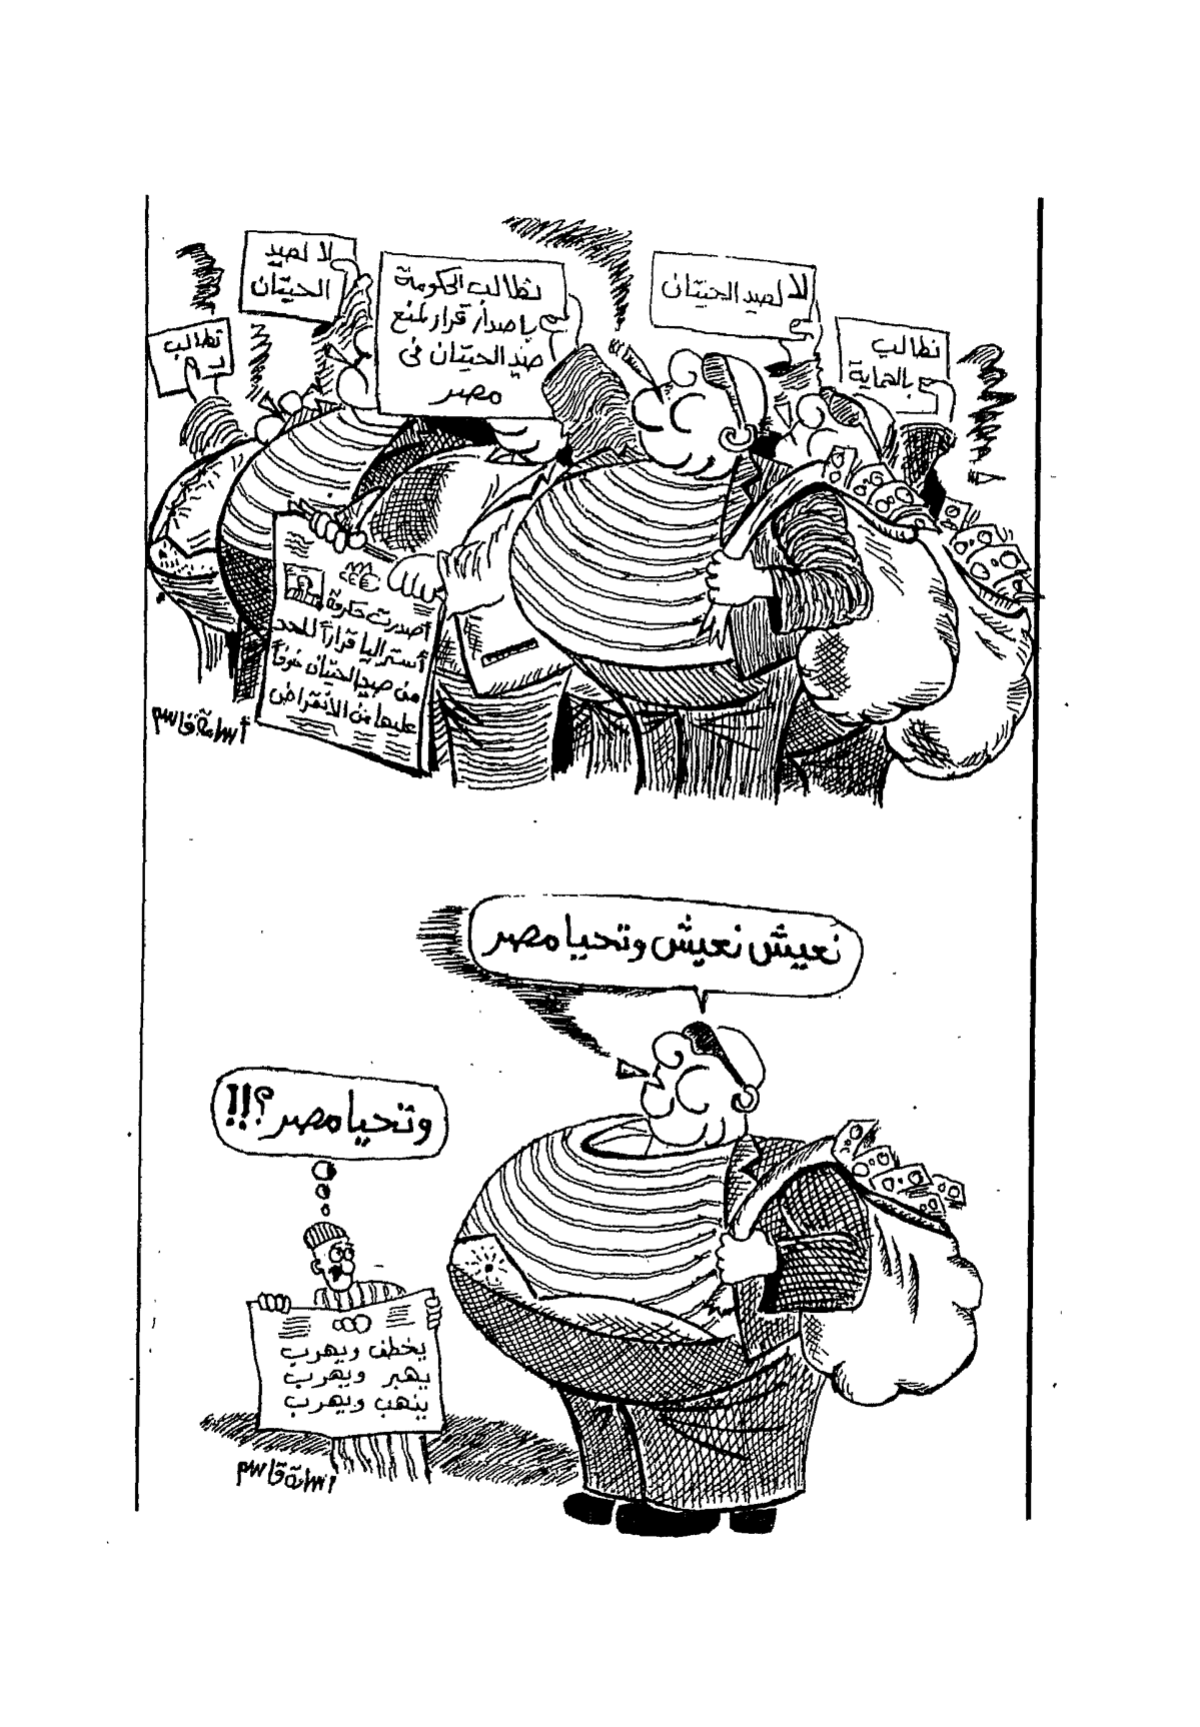 لا لصيد
الحيتان
نطالب الحكومة
بإصدار قرار لمنع
صيد الحيتان فى
مصر
لا لصيد الحيتان
نطالب
بالحماية
نطالب
أصدرت حكومة
أستراليا قراراً للحد
من صيد الحيتان خوفاً
عليها من الأنقراض
أسامة قاسم
نعيش نعيش وتحيا مصر
وتحيا مصر؟!!
يخطف ويهرب
يهبر ويهرب
ينهب ويهرب
أسامة قاسم